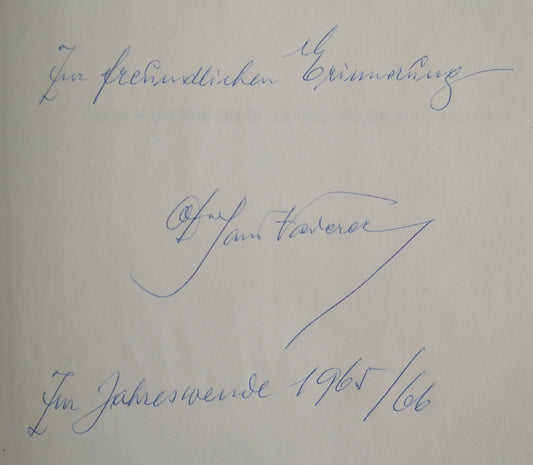 Zur freundlichen Erinnerung
Dr Hans
Zur Jahreswende 1965/66